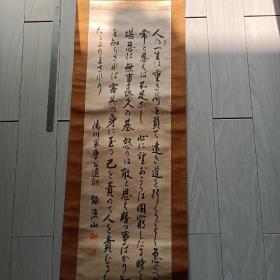 人の一生は重き荷を負て遠き道を行くごとし 急
常と思へば不足なし 心に望おこらば困窮したる時
堪忍は無事長久の基 怒りは敵と思へ 勝つ事ばかり
を知らざれば害其の身に至る 己を責めて人を責むるな
たるよりまされり
徳川家康公遺訓